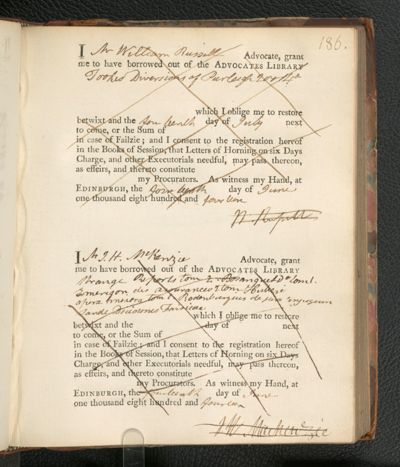 186.
I Mr William Russell Advocate, grant
me to have borrowed out of the ADVOCATES LIBRARY
Tookes Diversions of Purley
which I oblige me to restore
betwixt and the day of July next
to come, or the Sum of
in case of Failzie; and I consent to the registration hereof
in the Books of Session, that Letters of Horning on six Days
Charge, and other Executorials needful, may pass thereon,
as effeirs, and thereto constitute
my Procurators. As witness my Hand, at
EDINBURGH, the day of June
one thousand eight hundred and fourteen
W Russell
I Mr J. H. McKenzie Advocate, grant
me to have borrowed out of the ADVOCATES LIBRARY
Strange Reports tom 2 tom 1.
Emerigon des assurances 2 tom
opera tom 1 Rodenburgius de jure
Decisiones
which I oblige me to restore
betwixt and the day of next
to come, or the Sum of
in case of Failzie; and I consent to the registration hereof
in the Books of Session, that Letters of Horning on six Days
Charge, and other Executorials needful, may pass thereon,
as effeirs, and thereto constitute
my Procurators. As witness my Hand, at
EDINBURGH, the day of June
one thousand eight hundred and fourteen
J H Mackenzie